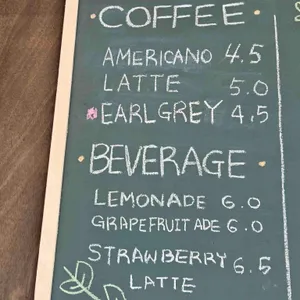 COFFEE
AMERICANO 4.5
LATTE 5.0
EARLGREY 4.5
BEVERAGE
LEMONADE 6.0
GRAPEFRUIT ADE 6.0
STRAWBERRY 6.5
LATTE